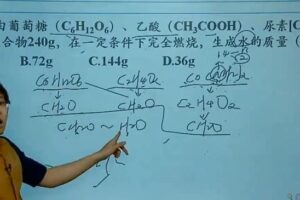 葡萄糖（C₆H₁₂O₆）、乙酸（CH₃COOH）、尿素[C
合物240g，在一定条件下完全燃烧，生成水的质量（
B.72g C.144g D.36g
C₆H₁₂O₆ C₂H₄O₂
CH₂O CH₂O C₂H₄O₂
CH₂O ~ H₂O CH₂O